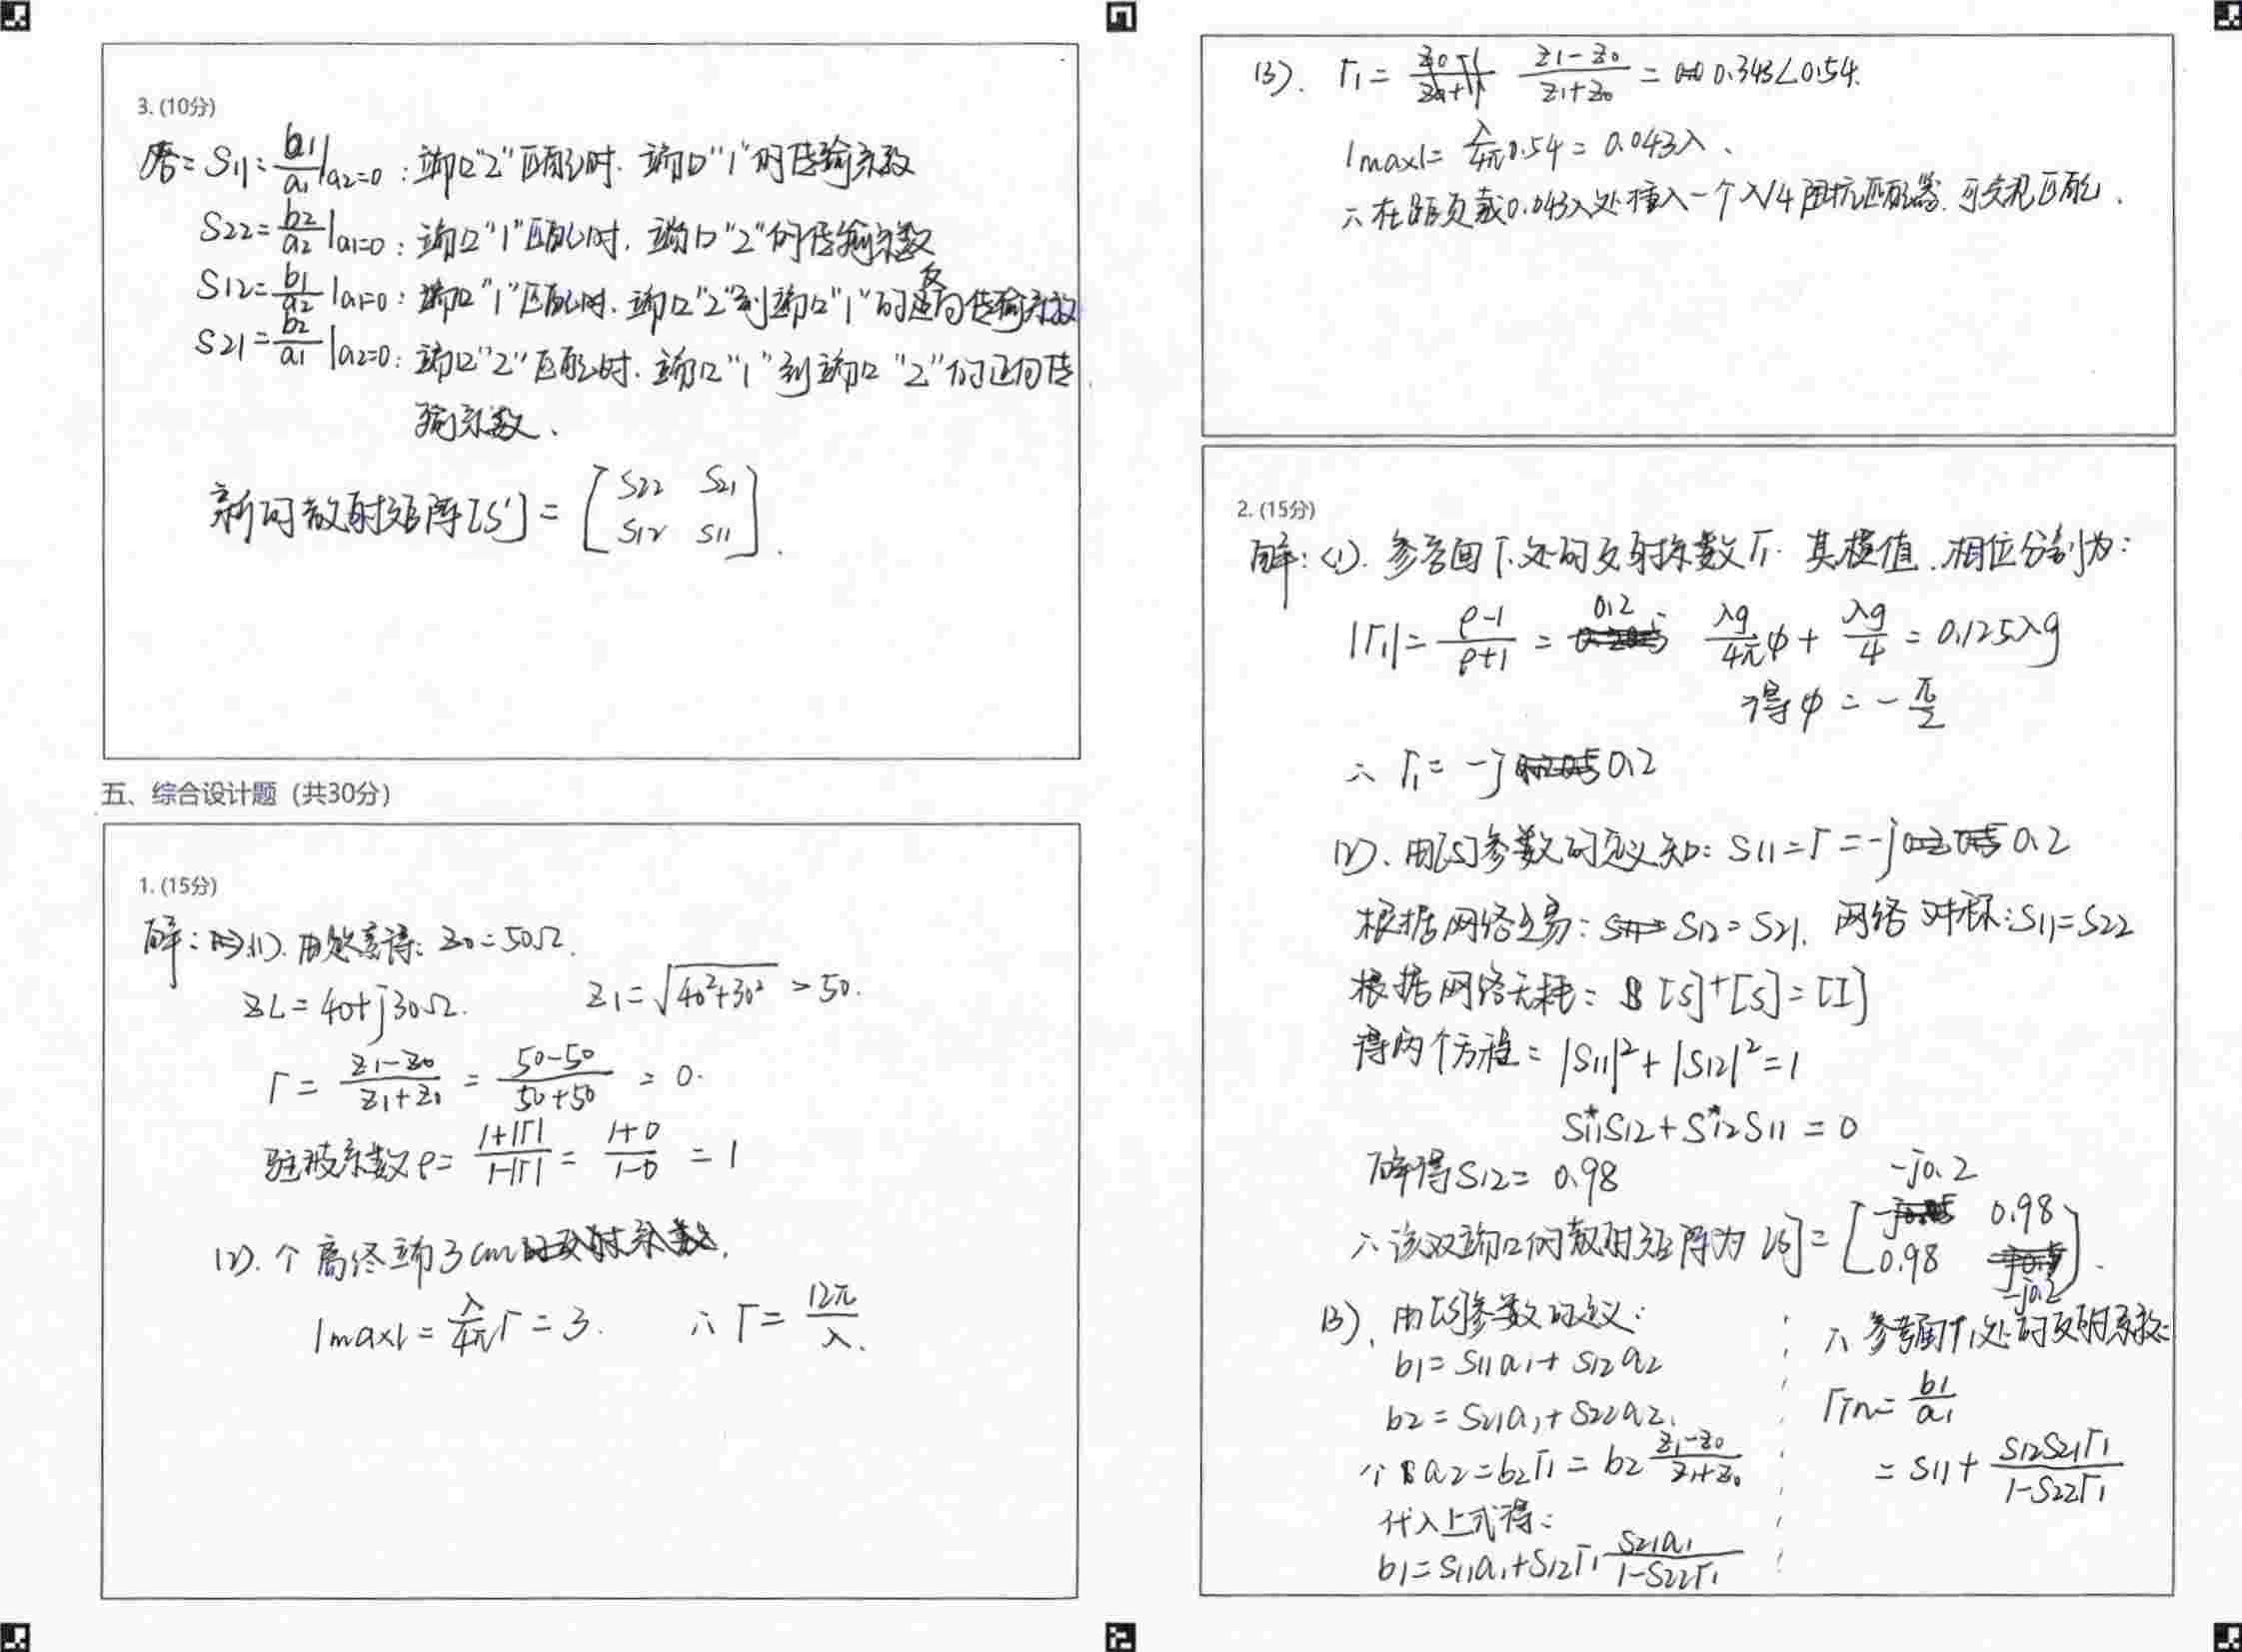 3. (10分)
答: S11 = b1/a1 |a2=0 : 端口"2"匹配时. 端口"1"的传输系数
S22 = b2/a2 |a1=0 : 端口"1"匹配时. 端口"2"的传输系数
S12 = b1/a2 |a1=0 : 端口"1"匹配时. 端口"2"到端口"1"的反向传输系数
S21 = b2/a1 |a2=0 : 端口"2"匹配时. 端口"1"到端口"2"的正向传
输系数.
新的散射矩阵[S'] = [S22 S21
S12 S11].
五、综合设计题（共30分）
1. (15分)
解: (1). 由题意得: Z0 = 50Ω.
ZL = 40+j30Ω. Z1 = √(40²+30²) = 50.
Γ = (Z1-Z0)/(Z1+Z0) = (50-50)/(50+50) = 0.
驻波系数ρ = (1+|Γ|)/(1-|Γ|) = (1+0)/(1-0) = 1
(2). 个 离终端3cm
lmax1 = λ/4π Γ = 3. ∴ Γ = 12π/λ.
(3). Γ1 = (Z1-Z0)/(Z1+Z0) = 0.343∠0.54.
lmax1 = λ/4π 0.54 = 0.043λ.
∴ 在距负载0.043λ处插入一个λ/4阻抗匹配器. 可实现匹配.
2. (15分)
解: (1). 参考面T1处的反射系数Γ1. 其模值. 相位分别为:
|Γ1| = (ρ-1)/(ρ+1) = 0.2 λg/4π φ + λg/4 = 0.125λg
得φ = -π/2
∴ Γ1 = -j0.2
(2). 由[S]参数的定义知: S11 = Γ = -j0.2
根据网络互易: S12 = S21. 网络对称: S11 = S22
根据网络无耗: [S]⁺[S] = [I]
得两个方程: |S11|² + |S12|² = 1
S11*S12 + S12*S11 = 0
解得S12 = 0.98
∴ 该双端口的散射矩阵为 [S] = [-j0.2 0.98
0.98 -j0.2].
(3). 由[S]参数的定义:
b1 = S11a1 + S12a2
b2 = S21a1 + S22a2.
个 a2 = b2Γ1 = b2 (Z1-Z0)/(Z1+Z0)
代入上式得:
b1 = S11a1 + S12Γ1 S21a1/(1-S22Γ1)
∴ 参考面T1处的反射系数:
Γin = b1/a1
= S11 + S12S21Γ1/(1-S22Γ1)